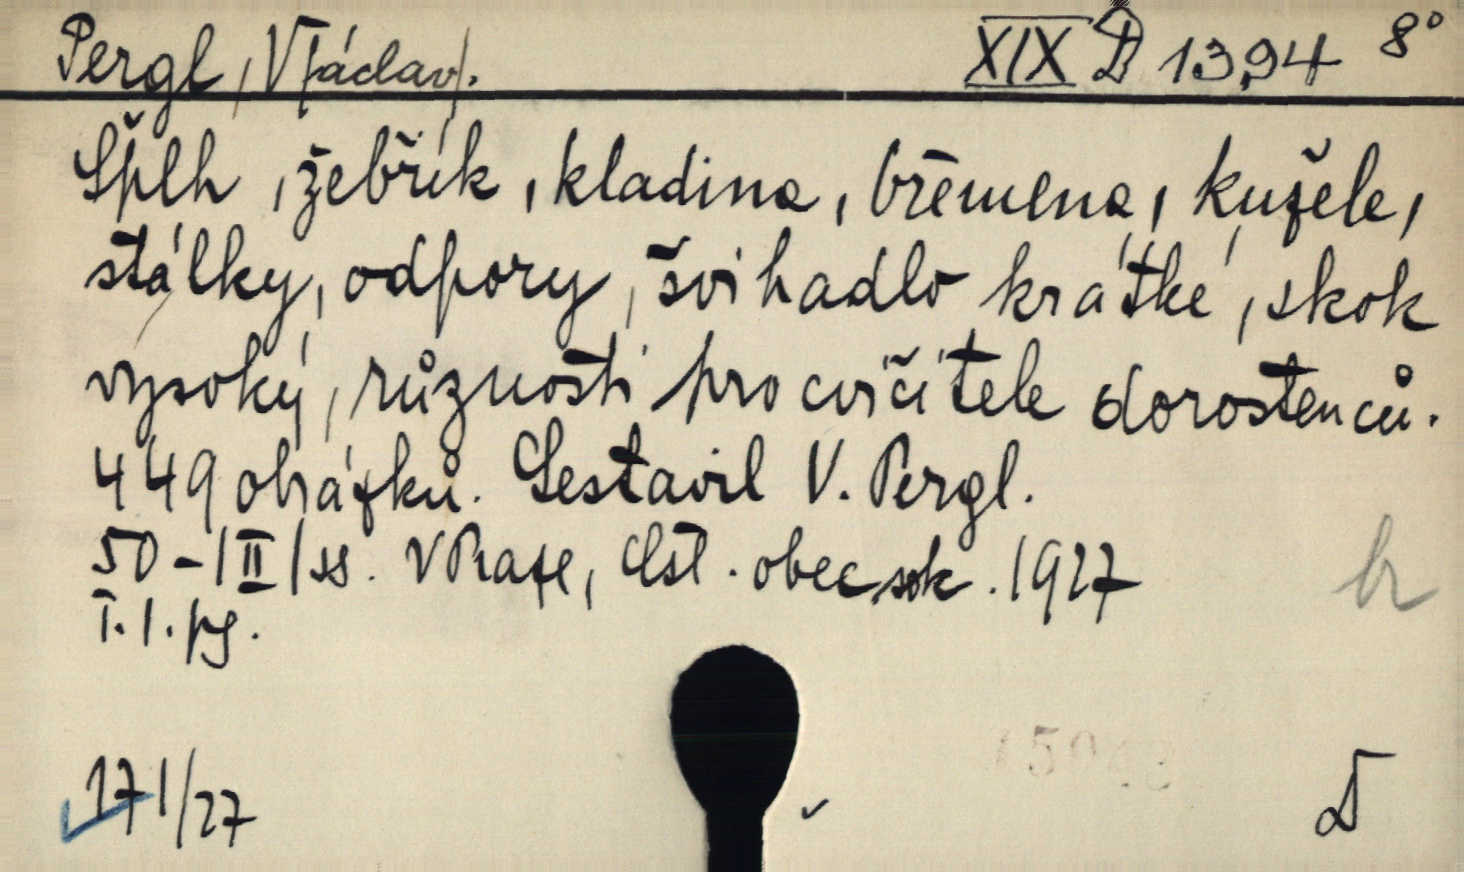 Pergl, V[áclav]. XIX D 1394 8°
Šplh, žebřík, kladina, břemena, kužele,
stálky, odpory, švihadlo krátké, skok
vysoký, různosti pro cvičitele dorostenců.
449 obrázků. Sestavil V. Pergl.
50-|II| ss. V Praze, Čsl. obec sok. 1927
T. 1. pg.
171/27